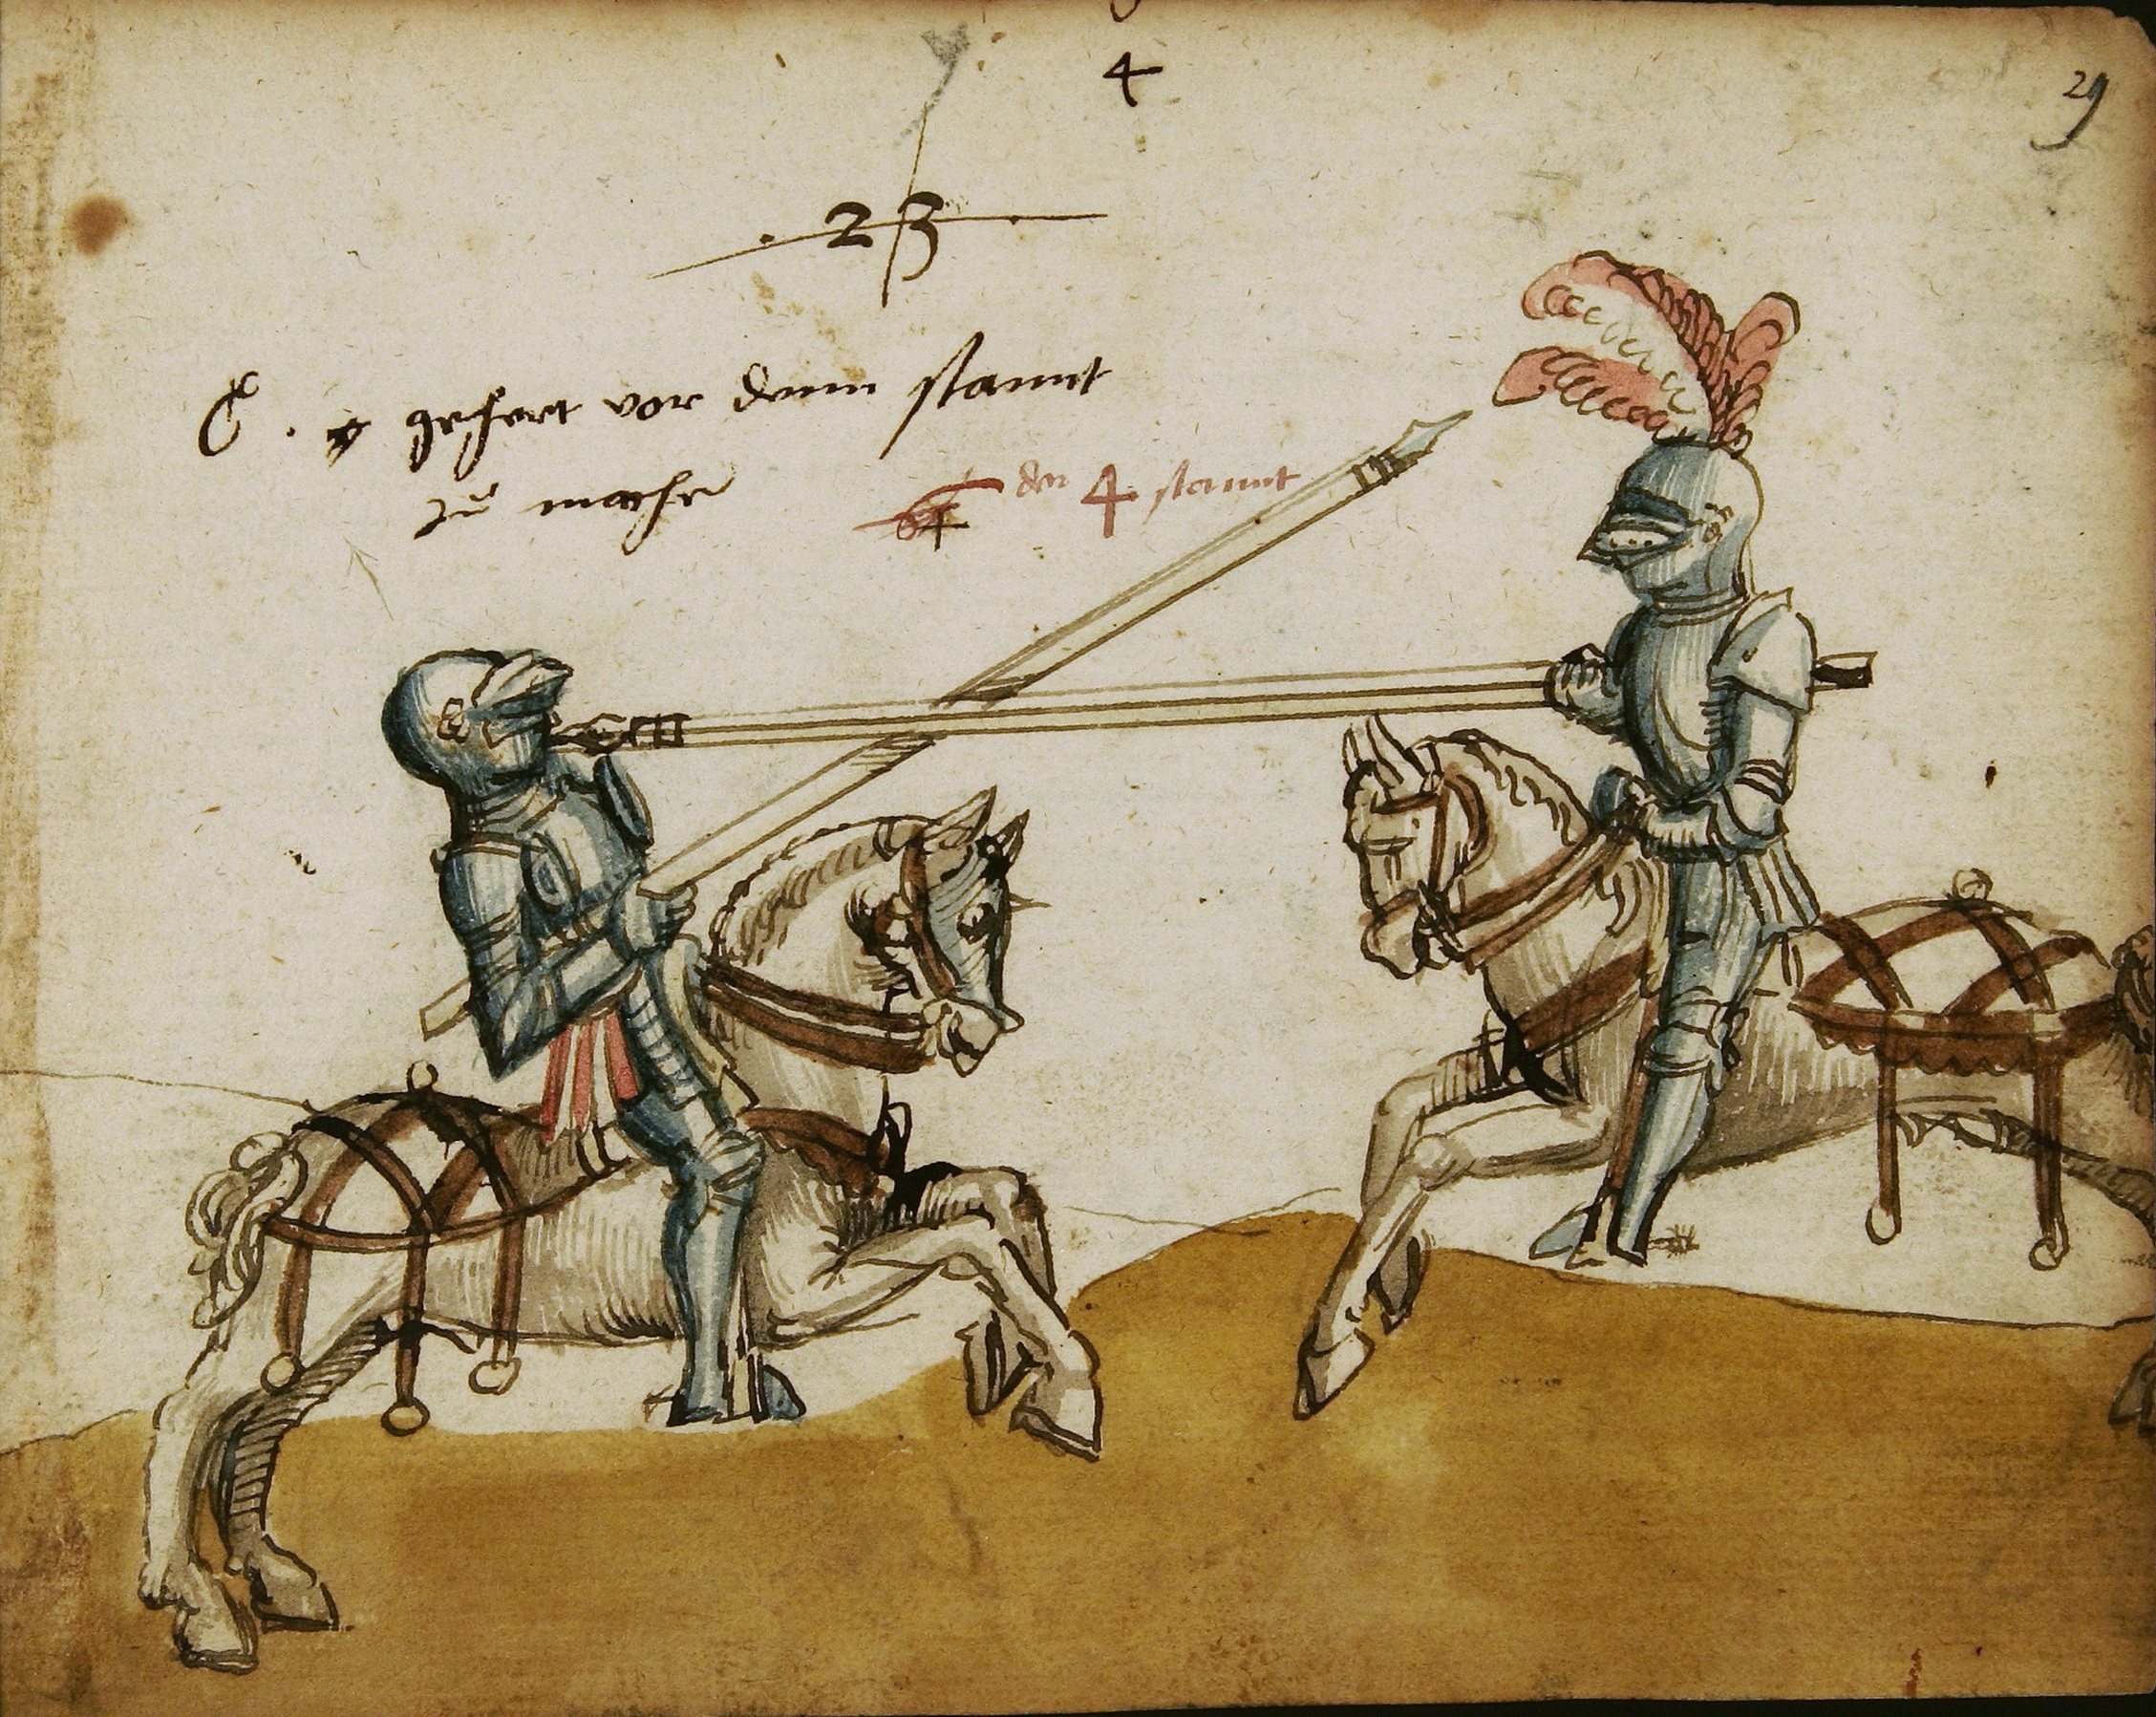 4
29
23
C. gehert vor dem stannt
zu mache
der 4 stannt